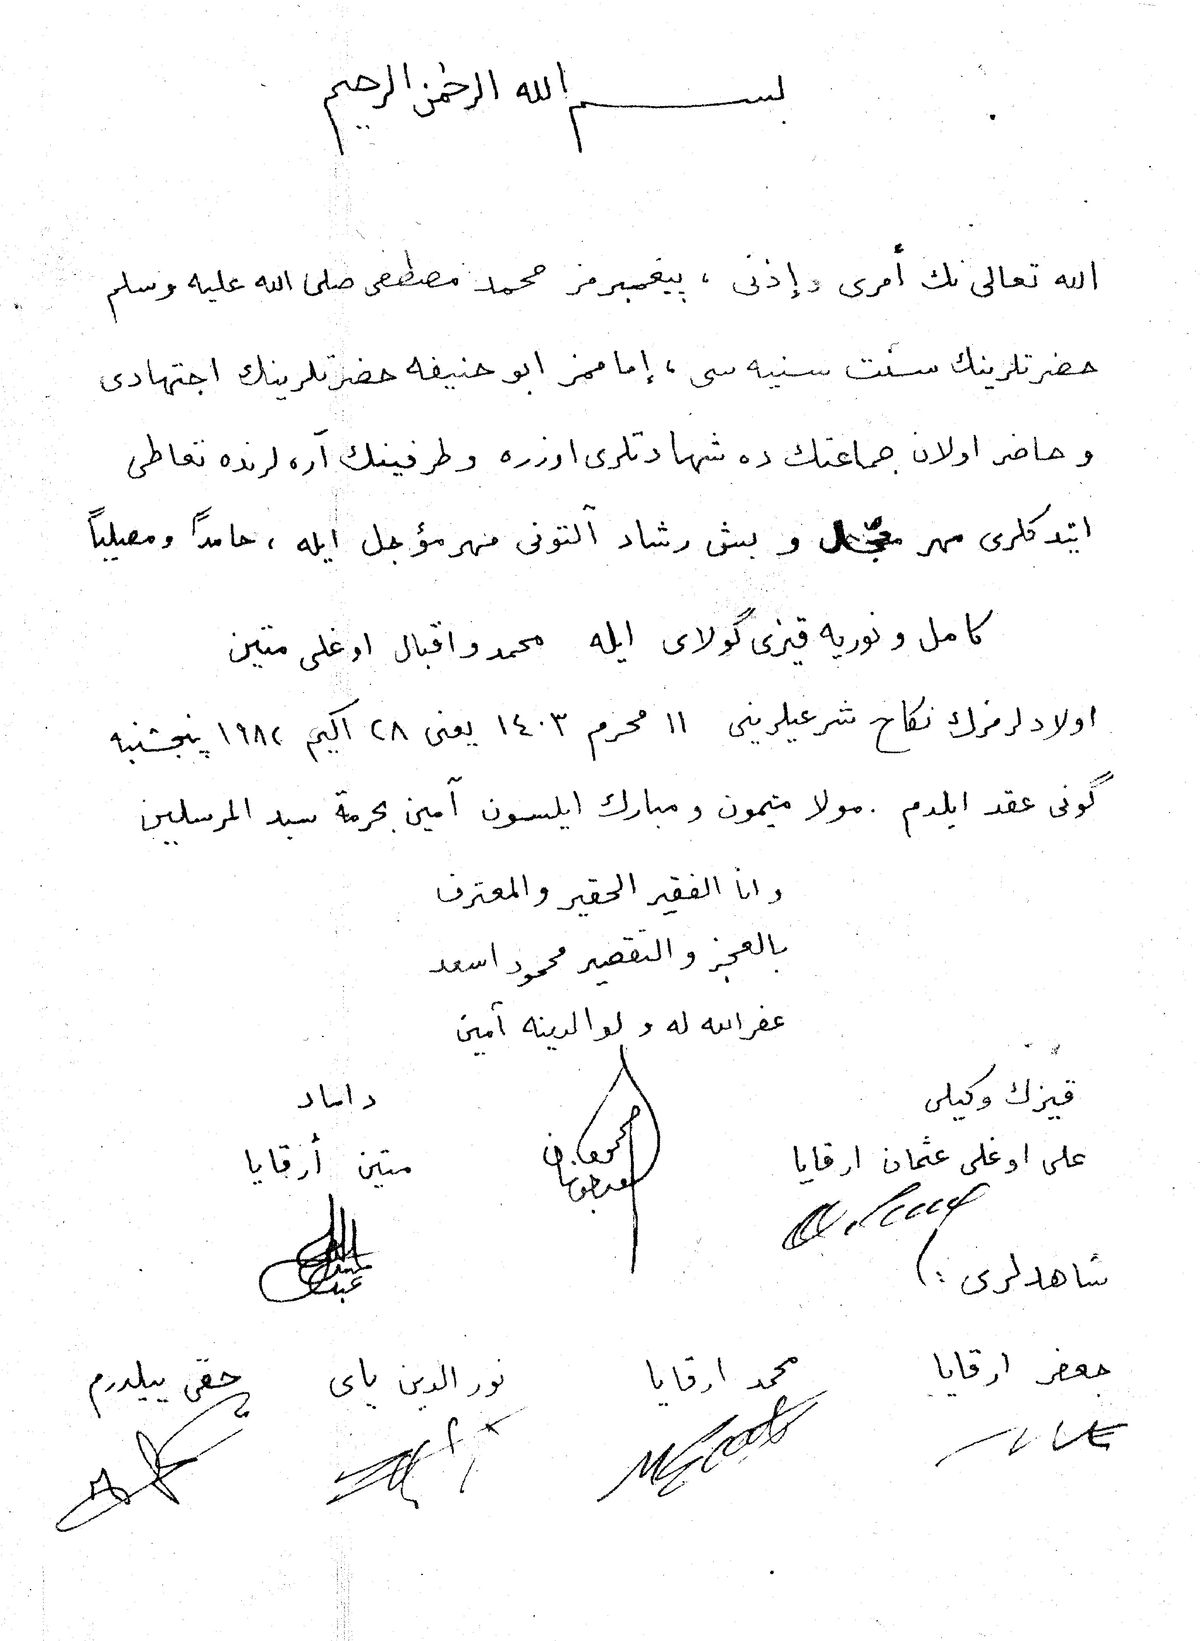 بسم الله الرحمن الرحيم
الله تعالى نك أمرى و إذنى ، پيغمبرمز محمد مصطفى صلى الله عليه وسلم
حضرتلرينك سنّت سنيه سى ، إماممز ابو حنيفه حضرتلرينك اجتهادى
و حاضر اولان جماعتك ده شهادتلرى اوزره و طرفينك آره لرنده تعاطى
ايتدكلرى مهر معجّل و بش رشاد آلتونى مهر مؤجل ايله ، حامداً و مصلياً
كامل و نوريه قيزى گولاى ايله محمد و اقبال اوغلى متين
اولادلرمزك نكاح شرعيلرينى ١١ محرم ١٤٠٣ يعنى ٢٨ اكيم ١٩٨٢ پنجشنبه
گونى عقد ايلدم . مولا ميمون و مبارك ايلسون آمين بحرمة سيد المرسلين
وانا الفقير الحقير والمعترف
بالعجز و التقصير محمود اسعد
غفر الله له و لوالدينه آمين
قيزك وكيلى
داماد
على اوغلى عثمان ارقايا
متين أرقايا
شاهدلرى :
جعفر ارقايا
محمد ارقايا
نور الدين باى
حقى ييلدرم